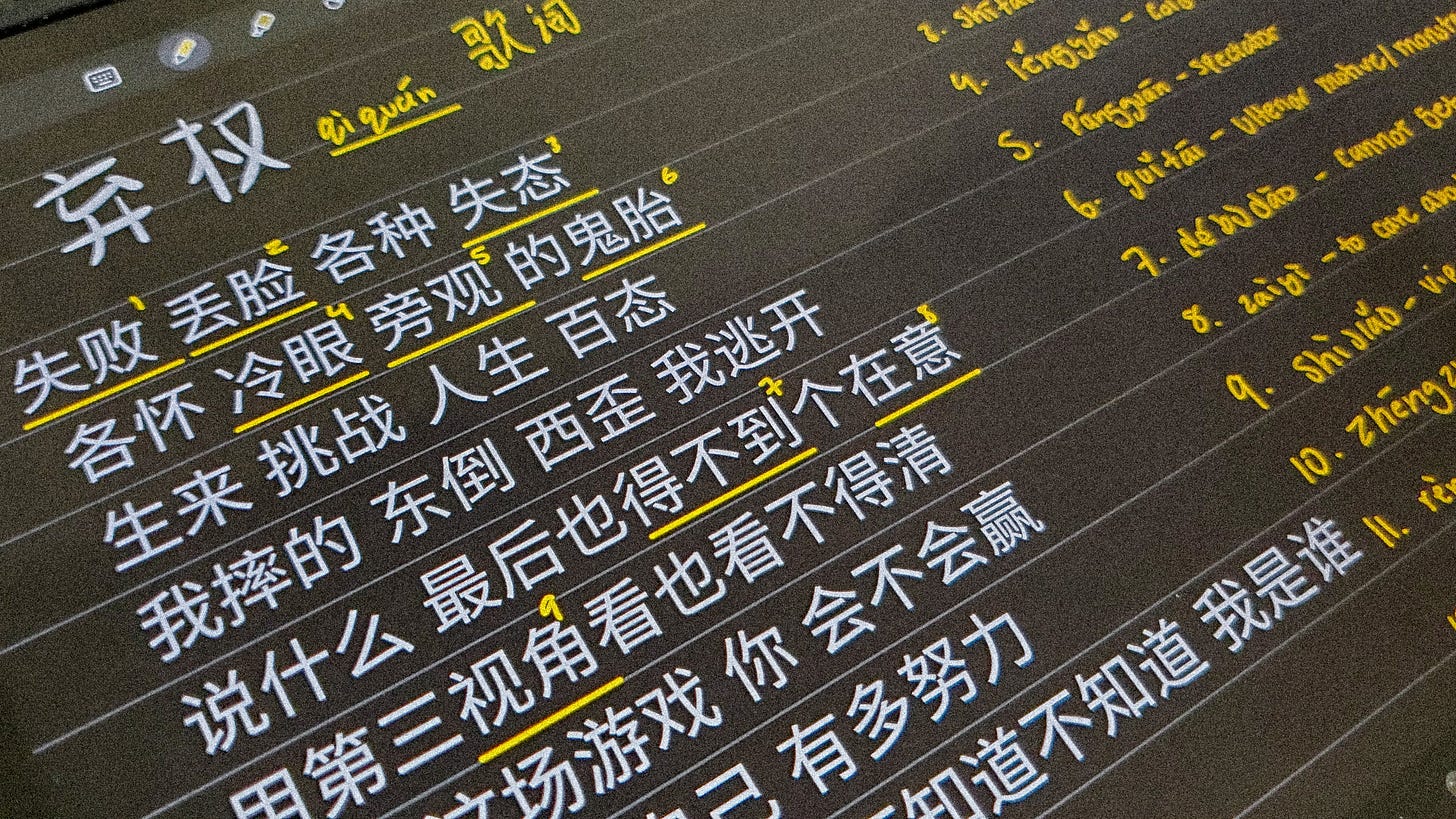 弃权 qì quán 歌词
失败1 丢脸2 各种 失态3
各怀 冷眼4 旁观5 的鬼胎6
生来 挑战 人生 百态
我摔的 东倒 西歪 我逃开
说什么 最后也得不到7个在意8
用第三视角9看也看不得清
这场游戏 你 会不会赢
自己 有多努力
知道不知道 我是谁
4. lěngyǎn -
5. pángguān - spectator
6. guǐtāi - ulterior motive/
7. dé bù dào - cannot
8. zàiyì - to care
9. shì jiǎo -
10.
11.